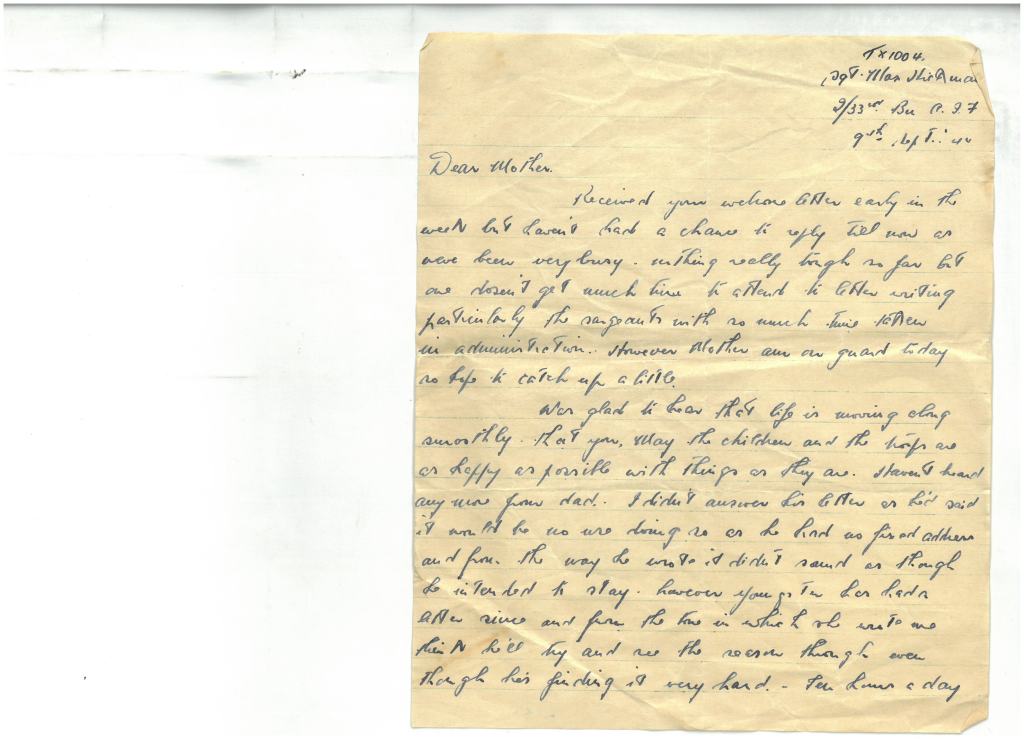 TX1004.
Sgt. Max Hickman
2/33rd Bn A.I.F
9th Sept. '44
Dear Mother.
Received your welcome letter early in the
week but haven't had a chance to reply till now as
weve been very busy. nothing really tough so far but
one doesn't get much time to attend to letter writing
particularly the sargeants with so much time taken
in administration. However Mother am on guard today
so hope to catch up a little.
Was glad to hear that life is moving along
smoothly. that you, May the children and the are
as happy as possible with things as they are. Haven't heard
any more from dad. I didn't answer his letter as he'd said
it would be no use doing so as he had no fixed address
and from the way he wrote it didn't sound as though
he intended to stay. however youngster has had a
letter since and from the tone in which she wrote me
think he'll try and see the season through even
though he's finding it very hard. - Ten hours a day